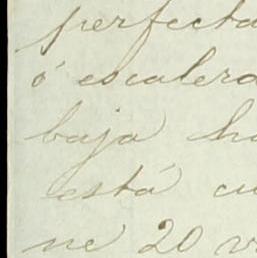 perfecta
ó escalera
baja ha
está cu
ne 20 va